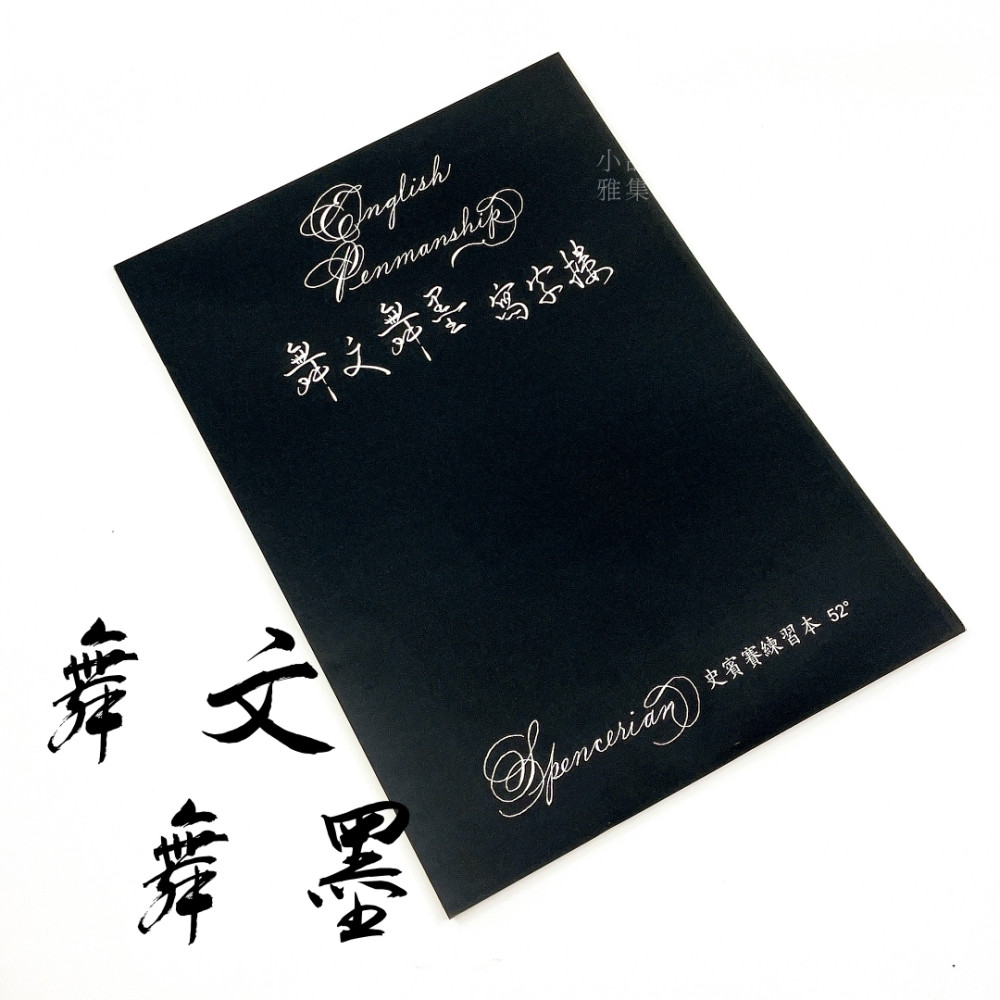 English
Penmanship
舞文舞墨 寫字樓
Spencerian 史賓賽練習本 52°
舞文
舞墨
雅集